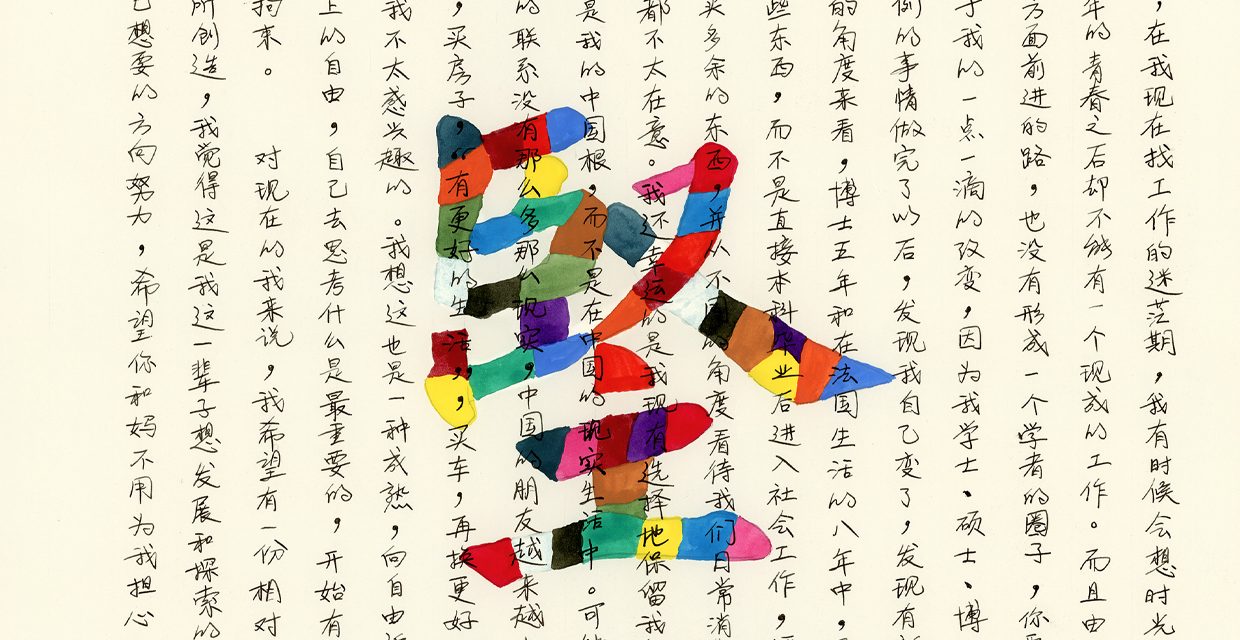 ，在我现在找工作的迷茫期，我有时候会想时光
年的青春之后却不能有一个现成的工作。而且由
方面前进的路，也没有形成一个学者的圈子，你
于我的一点一滴的改变，因为我学士、硕士、博
例的事情做完了以后，发现我自己变了，发现有
的角度来看，博士五年和在法国生活的八年中，
些东西，而不是直接本科毕业后进入社会工作，
买多余的东西，并从不同的角度看待我们日常消
都不太在意。我还幸运的是我现有选择地保留我
是我的中国根，而不是在中国的现实生活中。可
的联系没有那么多那么现实，中国的朋友越来越
，买房子，“有更好的生活”，买车，再换更好
我不太感兴趣的。我想这也是一种成熟，向自由
上的自由，自己去思考什么是最重要的，开始有
拘束。 对现在的我来说，我希望有一份相对
所创造，我觉得这是我这一辈子想发展和探索的
己想要的方向努力，希望你和妈不用为我担心
堅